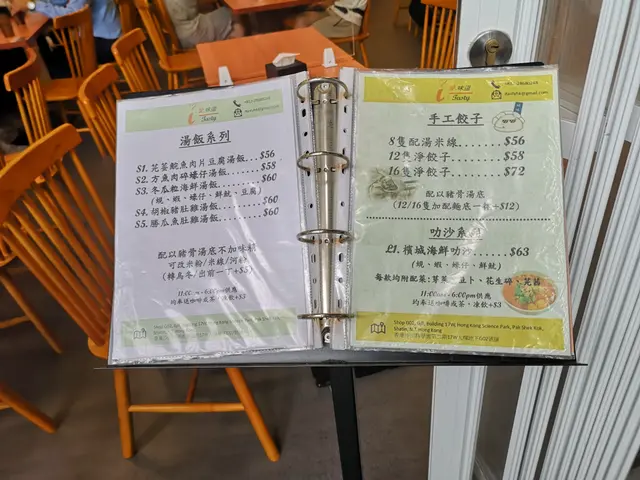 Tasty
湯飯系列
S1. 芫荽鯇魚肉片豆腐湯飯...$56
S2. 方魚肉碎蠔仔湯飯...$58
S3. 冬瓜粒海鮮湯飯......$60
(蜆、蝦、蠔仔、鮮魷、豆腐)
S4. 胡椒豬肚雞湯飯......$60
S5. 勝瓜魚肚雞湯飯......$60
配以豬骨湯底不加味精
可改米粉/米線/河粉
(轉烏冬/出前一丁+$5)
11:00am-6:00pm供應
均奉送咖啡或茶,凍飲+$3
Tasty
手工餃子
8隻配湯米線.......$56
12隻淨餃子.......$58
16隻淨餃子.......$72
配以豬骨湯底
(12/16隻加配麵底一租+$12)
叻沙系列
L1. 檳城海鮮叻沙......$63
(蜆、蝦、蠔仔、鮮魷)
每款均附配菜:芽菜、豆卜、花生碎、芫荽
11:00am-6:00pm供應
均奉送咖啡或茶,凍飲+$3